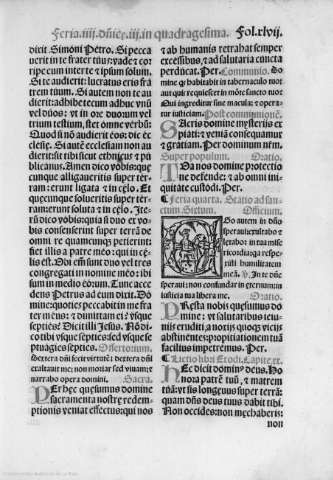 Feria.iiij.dñice.iij.in quadragesima. Fol.xlvij.
dicit. Simoni Petro. Si pecca
uerit in te frater tuus: vade & cor
ripe eum inter te & ipsum solum.
Si te audierit: lucratus eris fra
trem tuum. Si autem non te au
dierit: adhibe tecum adhuc vnũ
vel duos: vt in ore duorum vel
trium testium, stet omne verbũ.
Quod si nõ audierit eos: dic ec
clesie. Si autem ecclesiam non au
dierit: sit tibi sicut ethnicus & pu
blicanus. Amen dico vobis: que
cunque alligaueritis super ter-
ram: erunt ligata & in celo. Et
quecunque solueritis super ter-
ram: erunt soluta & in celo. Ite-
rũ dico vobis: quia si duo ex vo
bis consenserint super terrã de
omni re quamcunque petierint:
fiet illis a patre meo: qui in ce-
lis est. Ubi enim sunt duo vel tres
congregati in nomine meo: ibi
sum in medio eorum. Tunc acce
dens Petrus ad eum dixit. Do
mine: quoties peccabit in me fra
ter meus: & dimittam ei? vsque
septies? Dicit illi Jesus. Nõ di-
co tibi vsque septies: sed vsque se
ptuagies septies. Offertorium.
Dextera dñi fecit virtutẽ: dextera dñi
exaltauit me: non moriar sed viuam: et
narrabo opera domini. Sacra.
Per hec quesumus domine
sacramenta nostre redem-
ptionis veniat effectus: qui nos
& ab humanis retrahat semper
excessibus, & ad salutaria cuncta
perducat. Per. Communio.
mine quis habitabit in tabernaculo tuo:
aut quis requiescet in mõte sancto tuo?
Qui ingreditur sine macula: & opera-
tur iusticiam. Post communionẽ.
domine mysteriis ex
piati: & veniã consequamur
& gratiam. Per dominum nr̃m.
Super populum. Oratio.
Tua nos domine protectio
ne defende: & ab omni ini
quitate custodi. Per.
Feria quarta. Statio ad san
ctum Sixtum. Officium.
EGo autem in dño
speraui: exultabo &
letabor in tua mise
ricordia: quia respe
xisti humilitatem
meã. ps. In te dñe
speraui: non confundar in eternum: in
iusticia tua libera me. Oratio.
PResta nobis quesumus do
mine: vt salutaribus ieiu-
niis eruditi, a noxiis quoque viciis
abstinentes: propitiationem tuã
facilius impetremus. Per.
Lectio libri Exodi. Capite.xx.
HEc dicit dominus deus. Ho
nora patrẽ tuũ, & matrem
tuã: vt sis longeuus super terrã:
quam dñs deus tuus dabit tibi.
Non occides: non mechaberis:
non